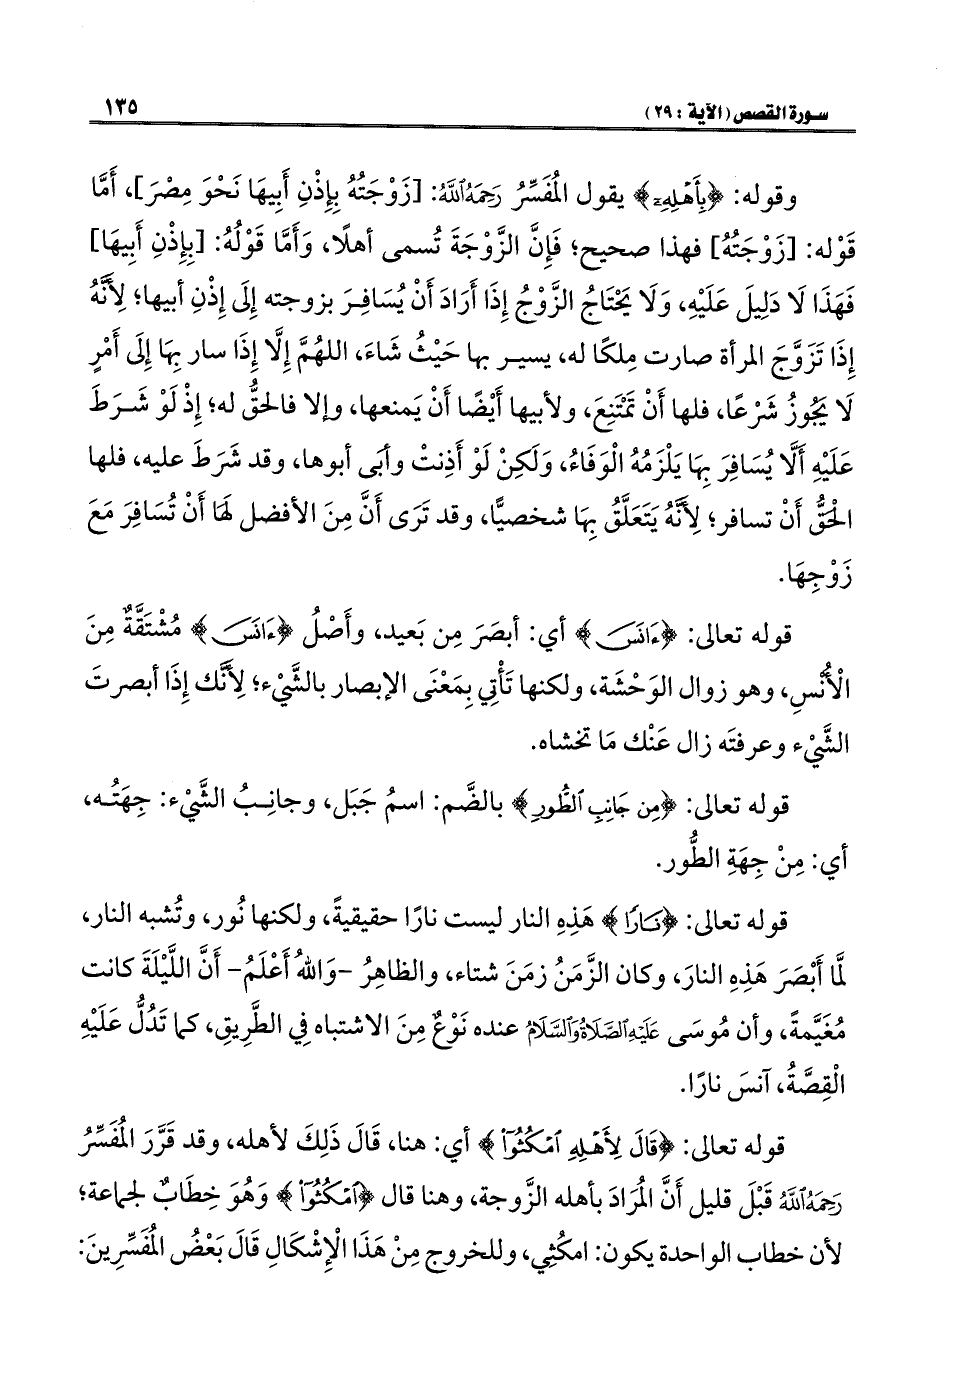 سورة القصص (الآية : ٢٩)
١٣٥
وقوله: ﴿بِأَهْلِهِۦ﴾ يقول المُفَسِّرُ رَحِمَهُ اللَّهُ: [زَوْجَتُهُ بِإِذْنِ أَبِيهَا نَحْوَ مِصْرَ]، أَمَّا
قَوْله: [زَوْجَتُهُ] فهذا صحيح؛ فَإِنَّ الزَّوْجَةَ تُسمى أهلًا، وَأَمَّا قَوْلُهُ: [بِإِذْنِ أَبِيهَا]
فَهَذَا لَا دَلِيلَ عَلَيْهِ، وَلَا يَحْتَاجُ الزَّوْجُ إِذَا أَرَادَ أَنْ يُسَافِرَ بزوجته إِلَى إِذْنِ أبيها؛ لِأَنَّهُ
إِذَا تَزَوَّجَ المرأة صارت مِلكًا له، يسير بها حَيْثُ شَاءَ، اللهُمَّ إِلَّا إِذَا سار بِهَا إِلَى أَمْرٍ
لَا يَجُوزُ شَرْعًا، فلها أَنْ تَمْتَنِعَ، ولأبيها أَيْضًا أَنْ يَمنعها، وإلا فالحَقُّ له؛ إِذْ لَوْ شَرَطَ
عَلَيْهِ أَلَّا يُسَافِرَ بِهَا يَلْزَمُهُ الْوَفَاءُ، وَلَكِنْ لَوْ أَذِنتْ وأبى أبوها، وقد شَرَطَ عليه، فلها
الحَقُّ أَنْ تسافر؛ لِأَنَّهُ يَتَعَلَّقُ بِهَا شخصيًّا، وقد تَرَى أَنَّ مِنَ الأفضل لَهَا أَنْ تُسَافِرَ مَعَ
زَوْجِهَا.
قوله تعالى: ﴿ءَانَسَ﴾ أي: أبصَرَ مِن بَعيد، وأَصْلُ ﴿ءَانَسَ﴾ مُشْتَقَّةٌ مِنَ
الْأُنْسِ، وهو زوال الوَحْشَة، ولكنها تَأْتِي بِمَعْنَى الإبصار بالشَّيْء؛ لِأَنَّك إِذَا أبصرتَ
الشَّيْء وعرفتَه زال عَنْك مَا تخشاه.
قوله تعالى: ﴿مِن جَانِبِ ٱلطُّورِ﴾ بالضَّم: اسمُ جَبَل، وجانِبُ الشَّيْء: جِهَتُه،
أي: مِنْ جِهَةِ الطُّور.
قوله تعالى: ﴿نَارًا﴾ هَذِهِ النار ليست نارًا حقيقيةً، ولكنها نُور، وتُشبه النار،
لمَّا أَبْصَرَ هَذِهِ النارَ، وكان الزَّمَنُ زمَنَ شتاء، والظاهِرُ -وَاللهُ أَعْلَمُ- أَنَّ اللَّيْلَةَ كانت
مُغَيَّمةً، وأن مُوسَى عَلَيْهِ الصَّلَاةُ وَالسَّلَامُ عنده نَوْعٌ مِنَ الاشتباه فِي الطَّرِيقِ، كما تَدُلُّ عَلَيْهِ
الْقِصَّةُ، آنسَ نارًا.
قوله تعالى: ﴿قَالَ لِأَهْلِهِ ٱمْكُثُوٓاْ﴾ أي: هنا، قَالَ ذَلِكَ لأهله، وقد قَرَّرَ المُفَسِّرُ
رَحِمَهُ اللَّهُ قَبْلَ قليل أَنَّ المُرَادَ بأهله الزَّوجة، وهنا قال ﴿ٱمْكُثُوٓاْ﴾ وَهُوَ خِطَابٌ لجماعة؛
لأن خطاب الواحدة يكون: امكُثِي، وللخروج مِنْ هَذَا الْإِشْكَالِ قَالَ بَعْضُ المُفَسِّرِينَ: